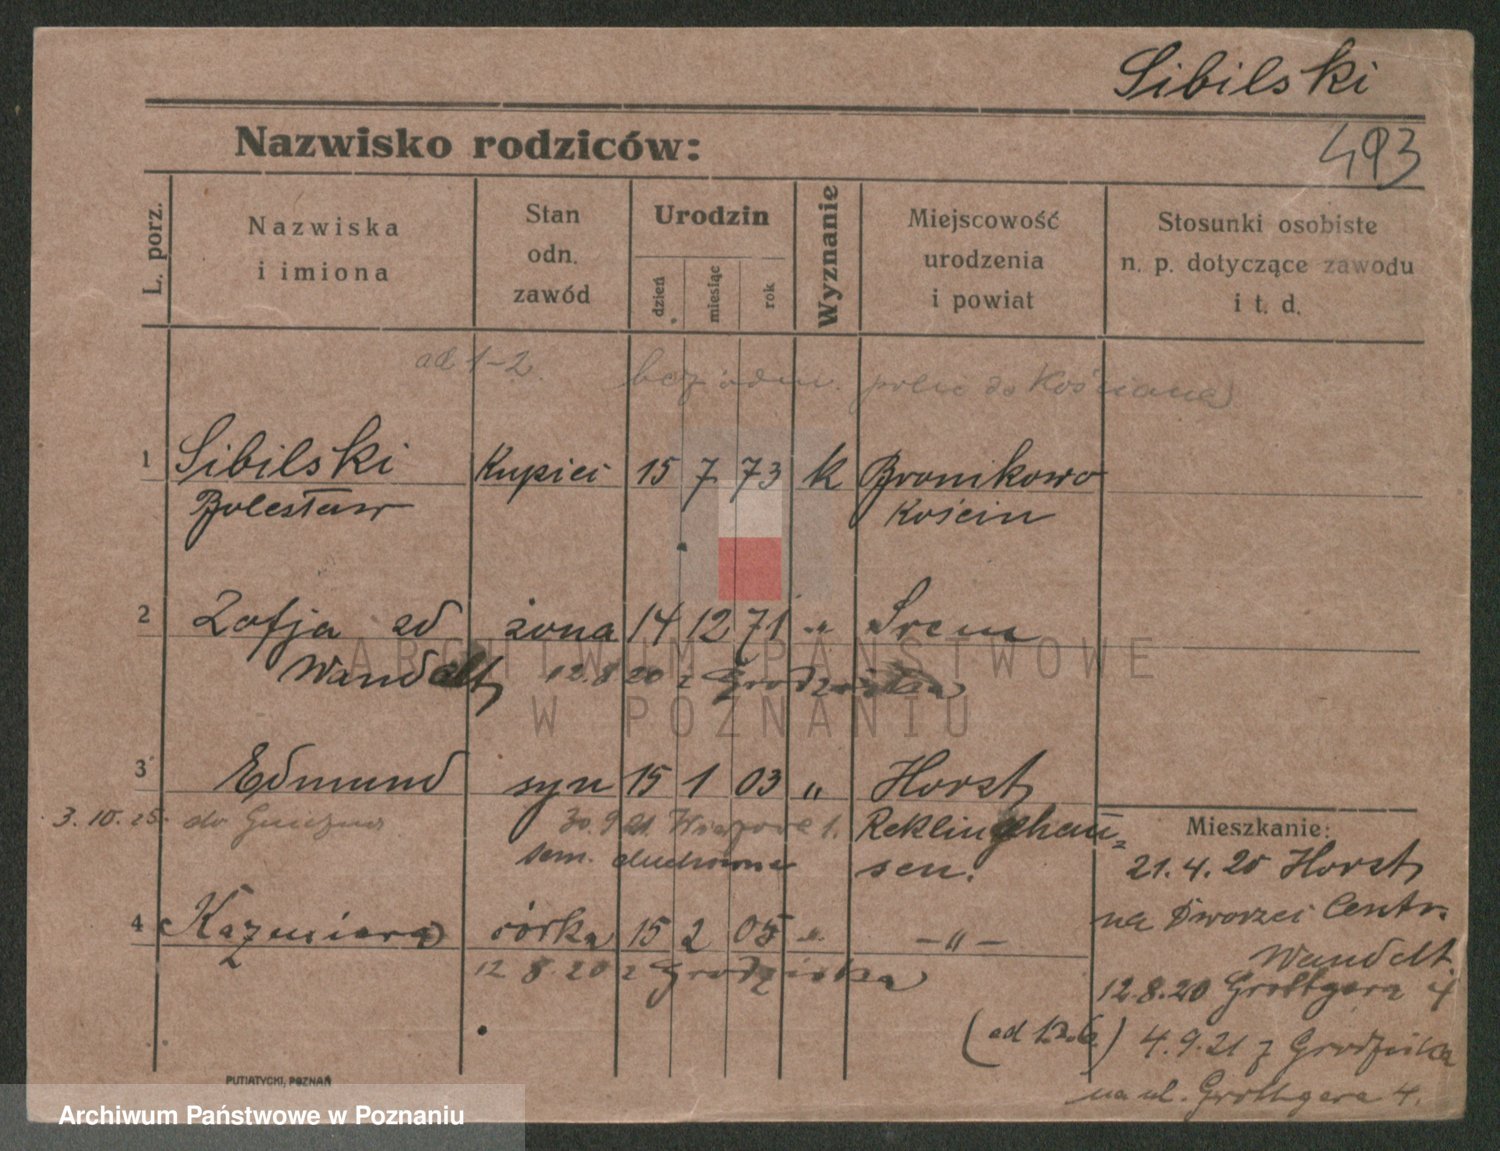 Sibilski
Nazwisko rodziców:
493
L. porz.
Nazwiska
i imiona
Stan
odn.
zawód
Urodzin
dzień
miesiąc
rok
Wyznanie
Miejscowość
urodzenia
i powiat
Stosunki osobiste
n. p. dotyczące zawodu
i t. d.
ad 1-2. do Kościana
1 Sibilski Kupiec 15 7 73 k Bronikowo
Bolesław Kościan
2 Zofja zd żona 14 12 71 " Śrem
Wandelt 12.8.20 z Grodziska
3 Edmund syn 15 1 03 " Horst
3.10.25. do Gniezna 30.9.21. Recklinghau-
sem. duchowne sen.
4 Kazmiera córka 15 2 05 " -"-
12 8.20 z Grodziska
Mieszkanie:
21.4.20 Horst
na Dworzec Centr.
Wandelt
12.8.20 Grottgera 4
4.9.21 z Grodziska
na ul. Grottgera 4.
PUTIATYCKI, POZNAŃ
ARCHIWUM PAŃSTWOWE
W POZNANIU
Archiwum Państwowe w Poznaniu